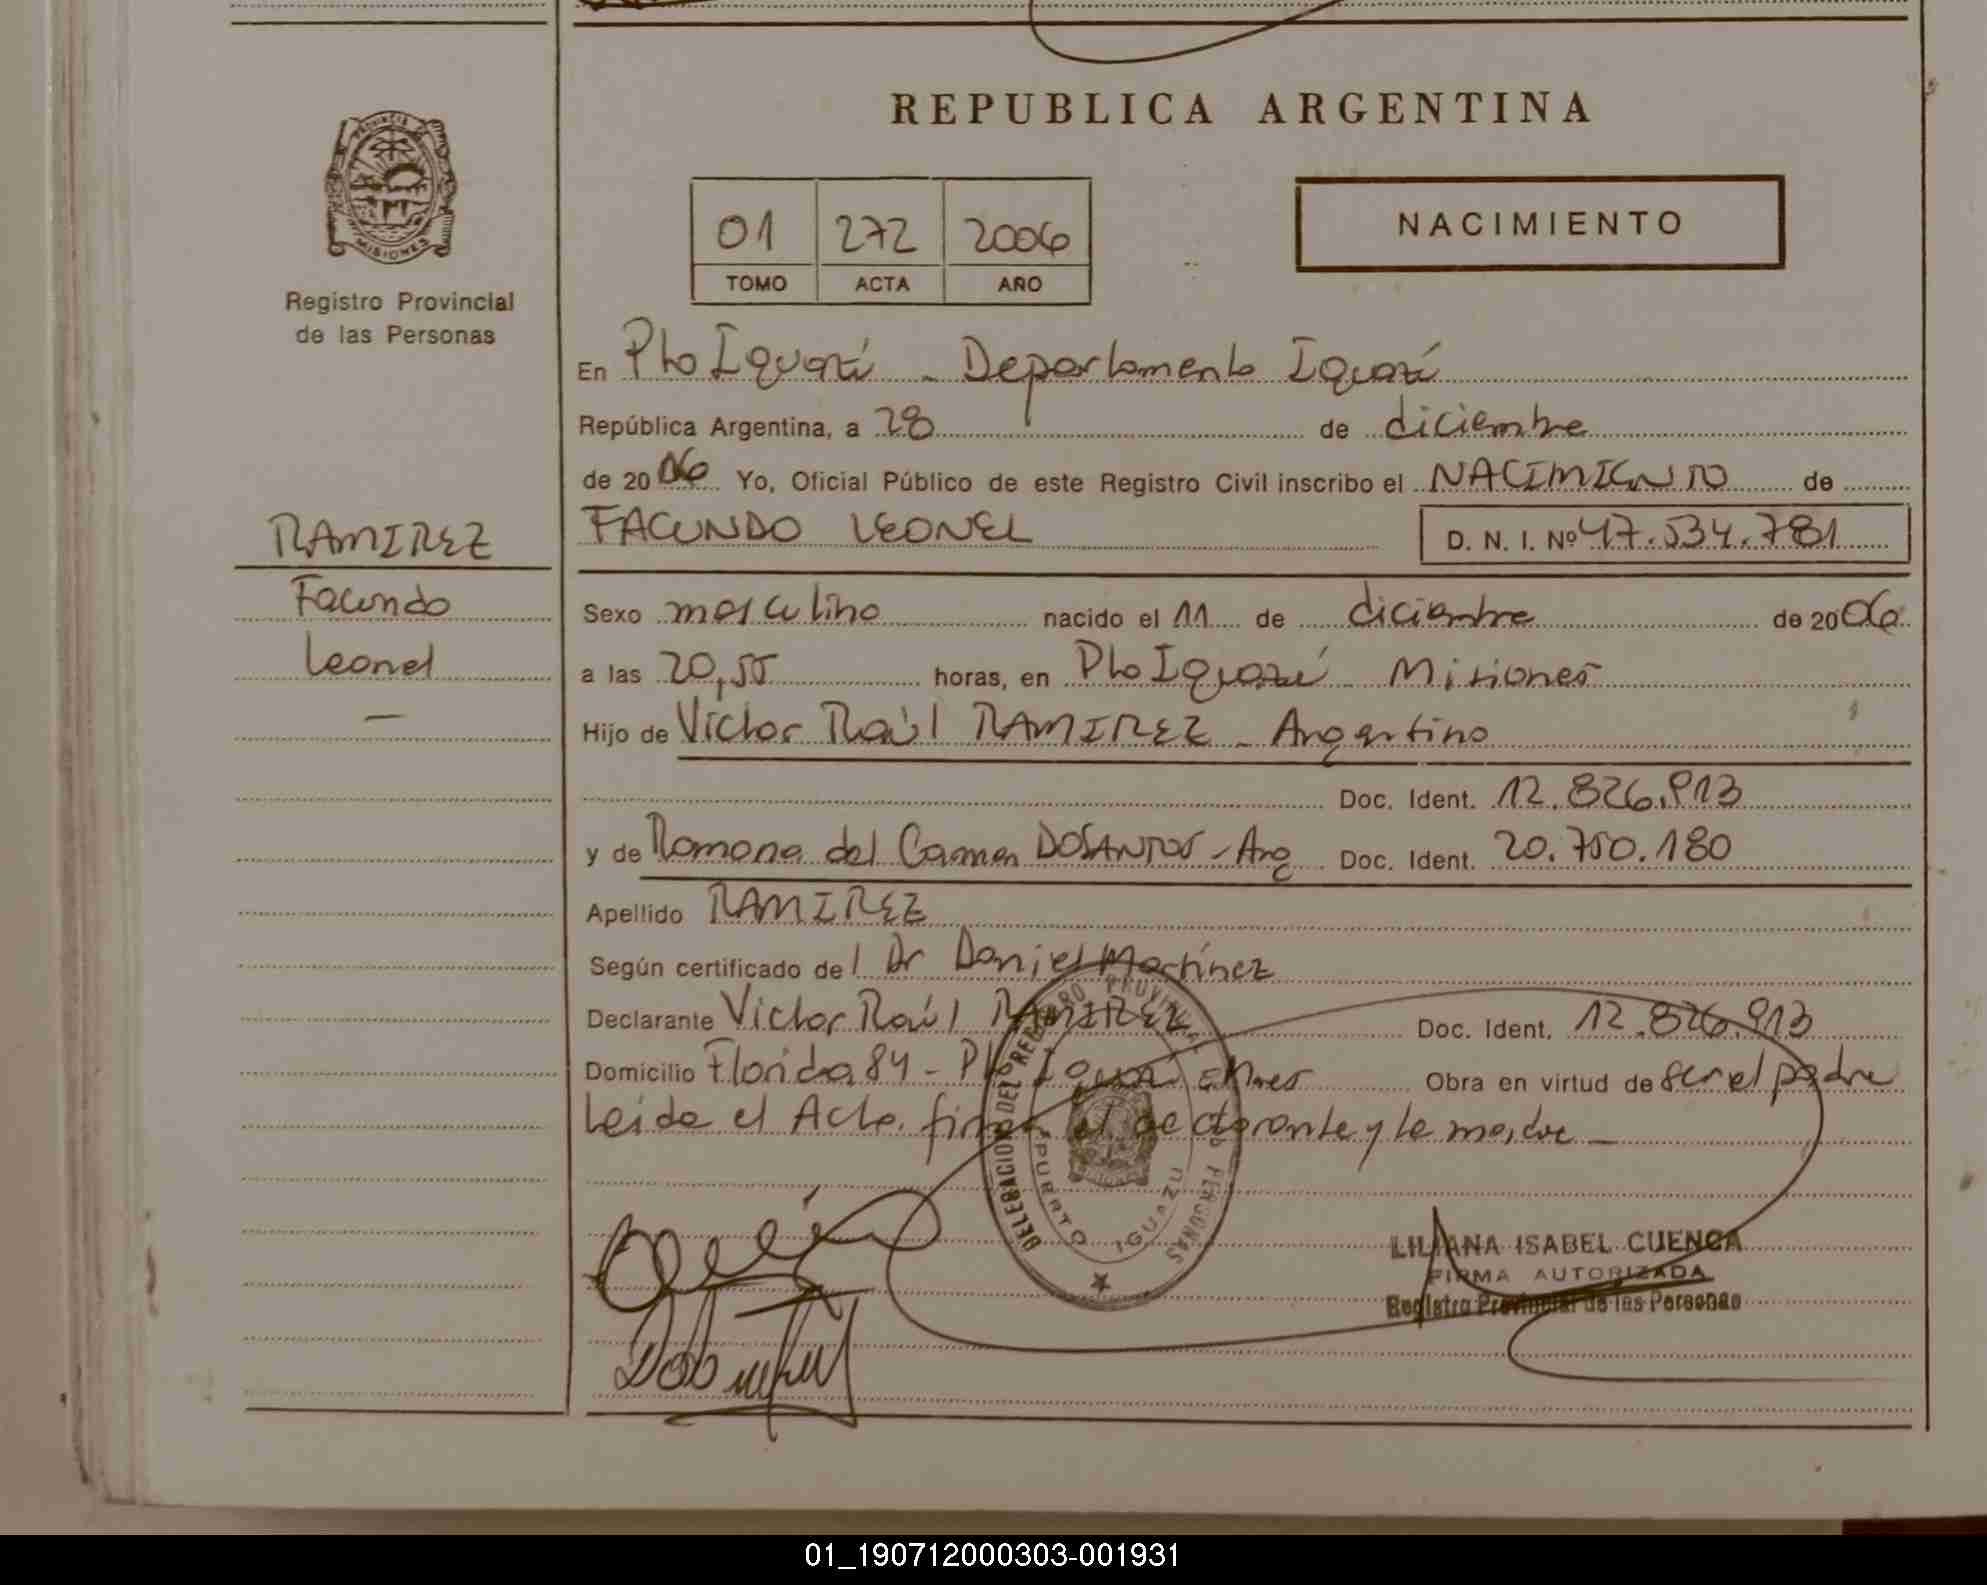 REPUBLICA ARGENTINA
PROVINCIA DE MISIONES
Registro Provincial
de las Personas
01 272 2006
TOMO ACTA AÑO
NACIMIENTO
En Pto Iguazú - Departamento Iguazú
República Argentina, a 28 de diciembre
de 2006 Yo, Oficial Público de este Registro Civil inscribo el NACIMIENTO de
FACUNDO LEONEL D. N. I. Nº 47.534.781
RAMIREZ
Facundo
Leonel
—
Sexo masculino nacido el 11 de diciembre de 2006
a las 20,55 horas, en Pto Iguazú Misiones
Hijo de Victor Raúl RAMIREZ - Argentino
Doc. Ident. 12.826.913
y de Ramona del Carmen DOSANTOS - Arg Doc. Ident. 20.750.180
Apellido RAMIREZ
Según certificado del Dr Daniel Martínez
Declarante Victor Raúl RAMIREZ Doc. Ident. 12.826.913
Domicilio Florida 84 - Pto Iguazú Mnes Obra en virtud de ser el padre
Leida el Acta. firman el declarante y la madre -
DELEGACION DEL REGISTRO PROVINCIAL DE PERSONAS
PUERTO IGUAZU
LILIANA ISABEL CUENCA
FIRMA AUTORIZADA
Registro Provincial de las Personas
01_190712000303-001931